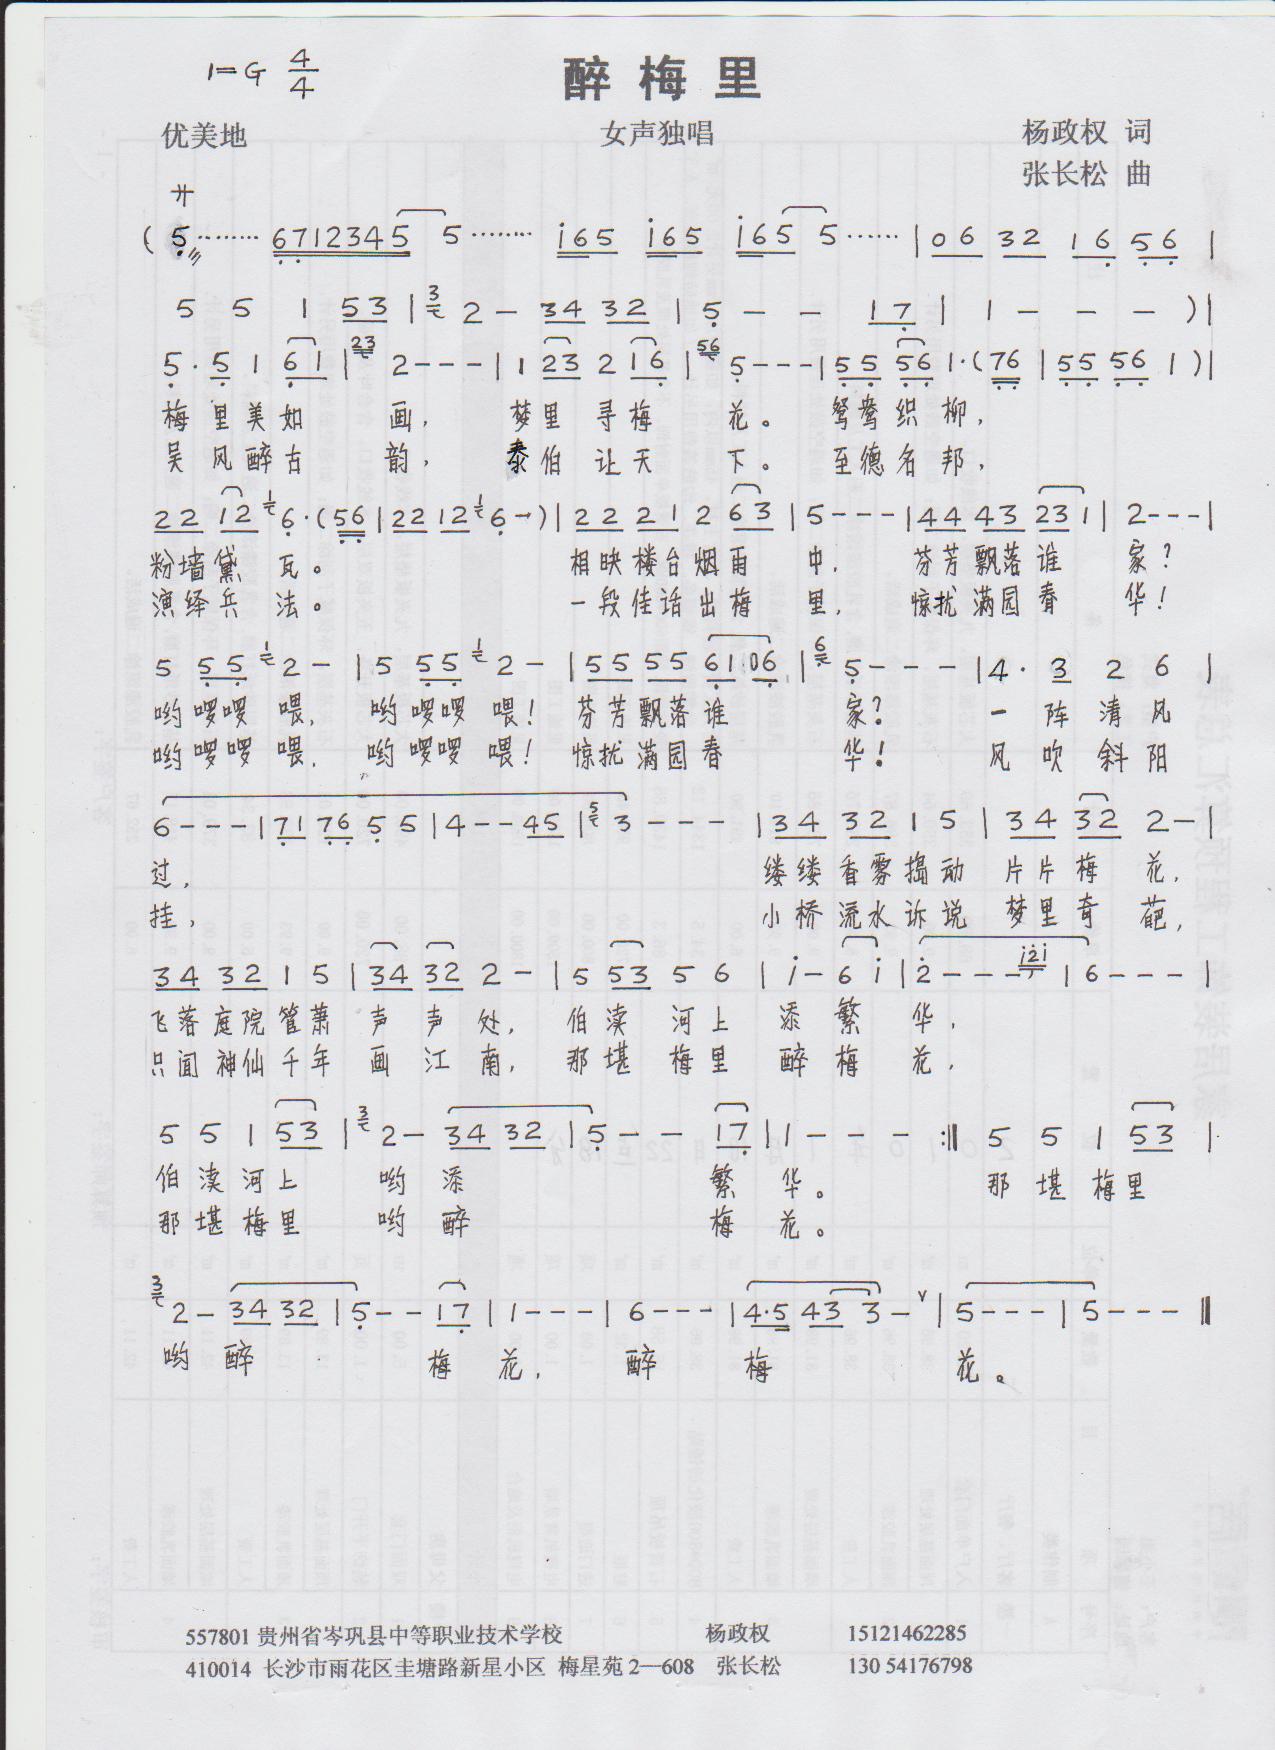 1=G 4/4
醉梅里
优美地 女声独唱 杨政权 词
张长松 曲
サ
( 5 ……… 6712345 5 ……… i65 i65 i65 5 …… | 06 32 16 56 |
5 5 1 53 | 3 2 – 34 32 | 5 – – 17 | 1 – – – ) |
5 · 5 1 61 | 23 2 - - - | 1 23 2 16 | 56 5 - - - | 55 56 1 · ( 76 | 55 56 1 ) |
梅里美如画，梦里寻梅花。鸳鸯织柳，
吴风醉古韵，泰伯让天下。至德名邦，
22 12 1 6 · ( 56 | 22 12 1 6 - ) | 22 21 2 63 | 5 - - - | 44 43 23 1 | 2 - - - |
粉墙黛瓦。相映楼台烟雨中，芬芳飘落谁家？
演绎兵法。一段佳话出梅里，惊扰满园春华！
5 55 1 2 – | 5 55 1 2 – | 55 55 61 06 | 6 5 - - - | 4 · 3 2 6 |
哟啰啰喂，哟啰啰喂！芬芳飘落谁家？一阵清风
哟啰啰喂，哟啰啰喂！惊扰满园春华！风吹斜阳
6 - - - | 71 76 5 5 | 4 - - 45 | 5 3 - - - | 34 32 1 5 | 34 32 2 – |
过，缕缕香雾捣动片片梅花，
挂，小桥流水诉说梦里奇葩，
34 32 1 5 | 34 32 2 – | 5 53 5 6 | i – 6 i | 2 - - - i2i | 6 - - - |
飞落庭院管萧声声处，伯渎河上添繁华，
只闻神仙千年画江南，那堪梅里醉梅花，
5 5 1 53 | 3 2 – 34 32 | 5 – – 17 | 1 – – – :‖ 5 5 1 53 |
伯渎河上哟添繁华。那堪梅里
那堪梅里哟醉梅花。
3 2 – 34 32 | 5 – – 17 | 1 - - - | 6 - - - | 4·5 43 3 – ∨ | 5 - - - | 5 - - - ‖
哟醉梅花，醉梅花。
557801 贵州省岑巩县中等职业技术学校 杨政权 15121462285
410014 长沙市雨花区圭塘路新星小区 梅星苑 2—608 张长松 130 54176798